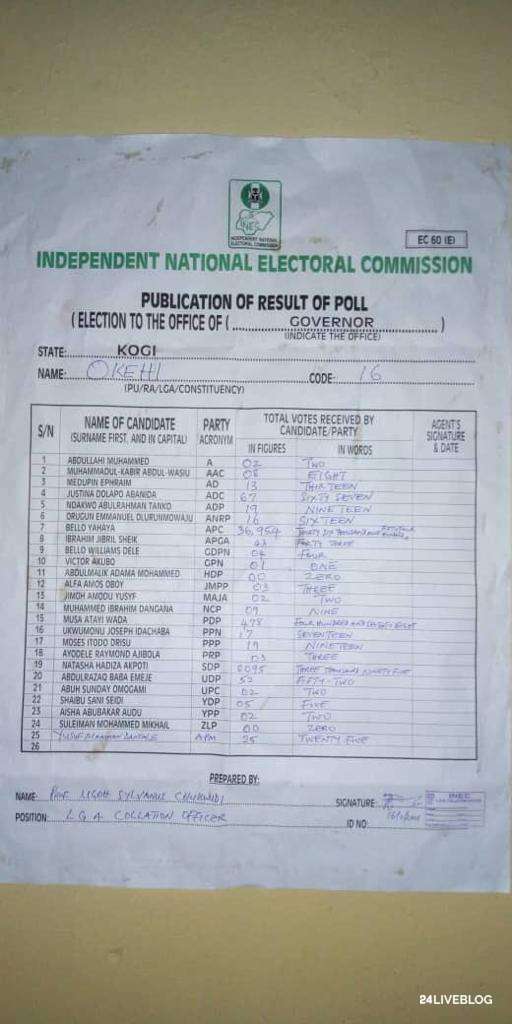 INEC
INDEPENDENT NATIONAL ELECTORAL COMMISSION
EC 60 (E)
INDEPENDENT NATIONAL ELECTORAL COMMISSION
PUBLICATION OF RESULT OF POLL
( ELECTION TO THE OFFICE OF ( GOVERNOR )
(INDICATE THE OFFICE)
STATE: KOGI
NAME: OKEHI CODE: 16
(PU/RA/LGA/CONSTITUENCY)
S/N NAME OF CANDIDATE (SURNAME FIRST, AND IN CAPITAL) PARTY ACRONYM TOTAL VOTES RECEIVED BY CANDIDATE/PARTY AGENT'S SIGNATURE & DATE
IN FIGURES IN WORDS
1 ABDULLAHI MUHAMMED A 02 TWO
2 MUHAMMADUL-KABIR ABDUL-WASIU AAC 08 EIGHT
3 MEDUPIN EPHRAIM AD 13 THIRTEEN
4 JUSTINA DOLAPO ABANIDA ADC 67 SIXTY SEVEN
5 NDAKWO ABULRAHMAN TANKO ADP 19 NINETEEN
6 ORUGUN EMMANUEL OLURUNMOWAJU ANRP 16 SIXTEEN
7 BELLO YAHAYA APC 36,954 THIRTY SIX THOUSAND
8 IBRAHIM JIBRIL SHEIK APGA 43 FORTY THREE
9 BELLO WILLIAMS DELE GDPN 04 FOUR
10 VICTOR AKUBO GPN 01 ONE
11 ABDULMALIK ADAMA MOHAMMED HDP 00 ZERO
12 ALFA AMOS OBOY JMPP 03 THREE
13 JIMOH AMODU YUSYF MAJA 02 TWO
14 MUHAMMED IBRAHIM DANGANA NCP 09 NINE
15 MUSA ATAYI WADA PDP 478 FOUR HUNDRED AND
16 UKWUMONU JOSEPH IDACHABA PPN 17 SEVENTEEN
17 MOSES ITODO DRISU PPP 19 NINETEEN
18 AYODELE RAYMOND AJIBOLA PRP 03 THREE
19 NATASHA HADIZA AKPOTI SDP 3095 THREE THOUSAND NINETY FIVE
20 ABDULRAZAQ BABA EMEJE UDP 52 FIFTY-TWO
21 ABUH SUNDAY OMOGAMI UPC 02 TWO
22 SHAIBU SANI SEIDI YDP 05 FIVE
23 AISHA ABUBAKAR AUDU YPP 02 TWO
24 SULEIMAN MOHAMMED MIKHAIL ZLP 00 ZERO
25 YUSUF DANTALLE APM 25 TWENTY FIVE
26
PREPARED BY:
NAME: PROF. SYLVANUS SIGNATURE:
POSITION: L.G.A COLLATION OFFICER ID NO:
INEC
24LIVEBLOG